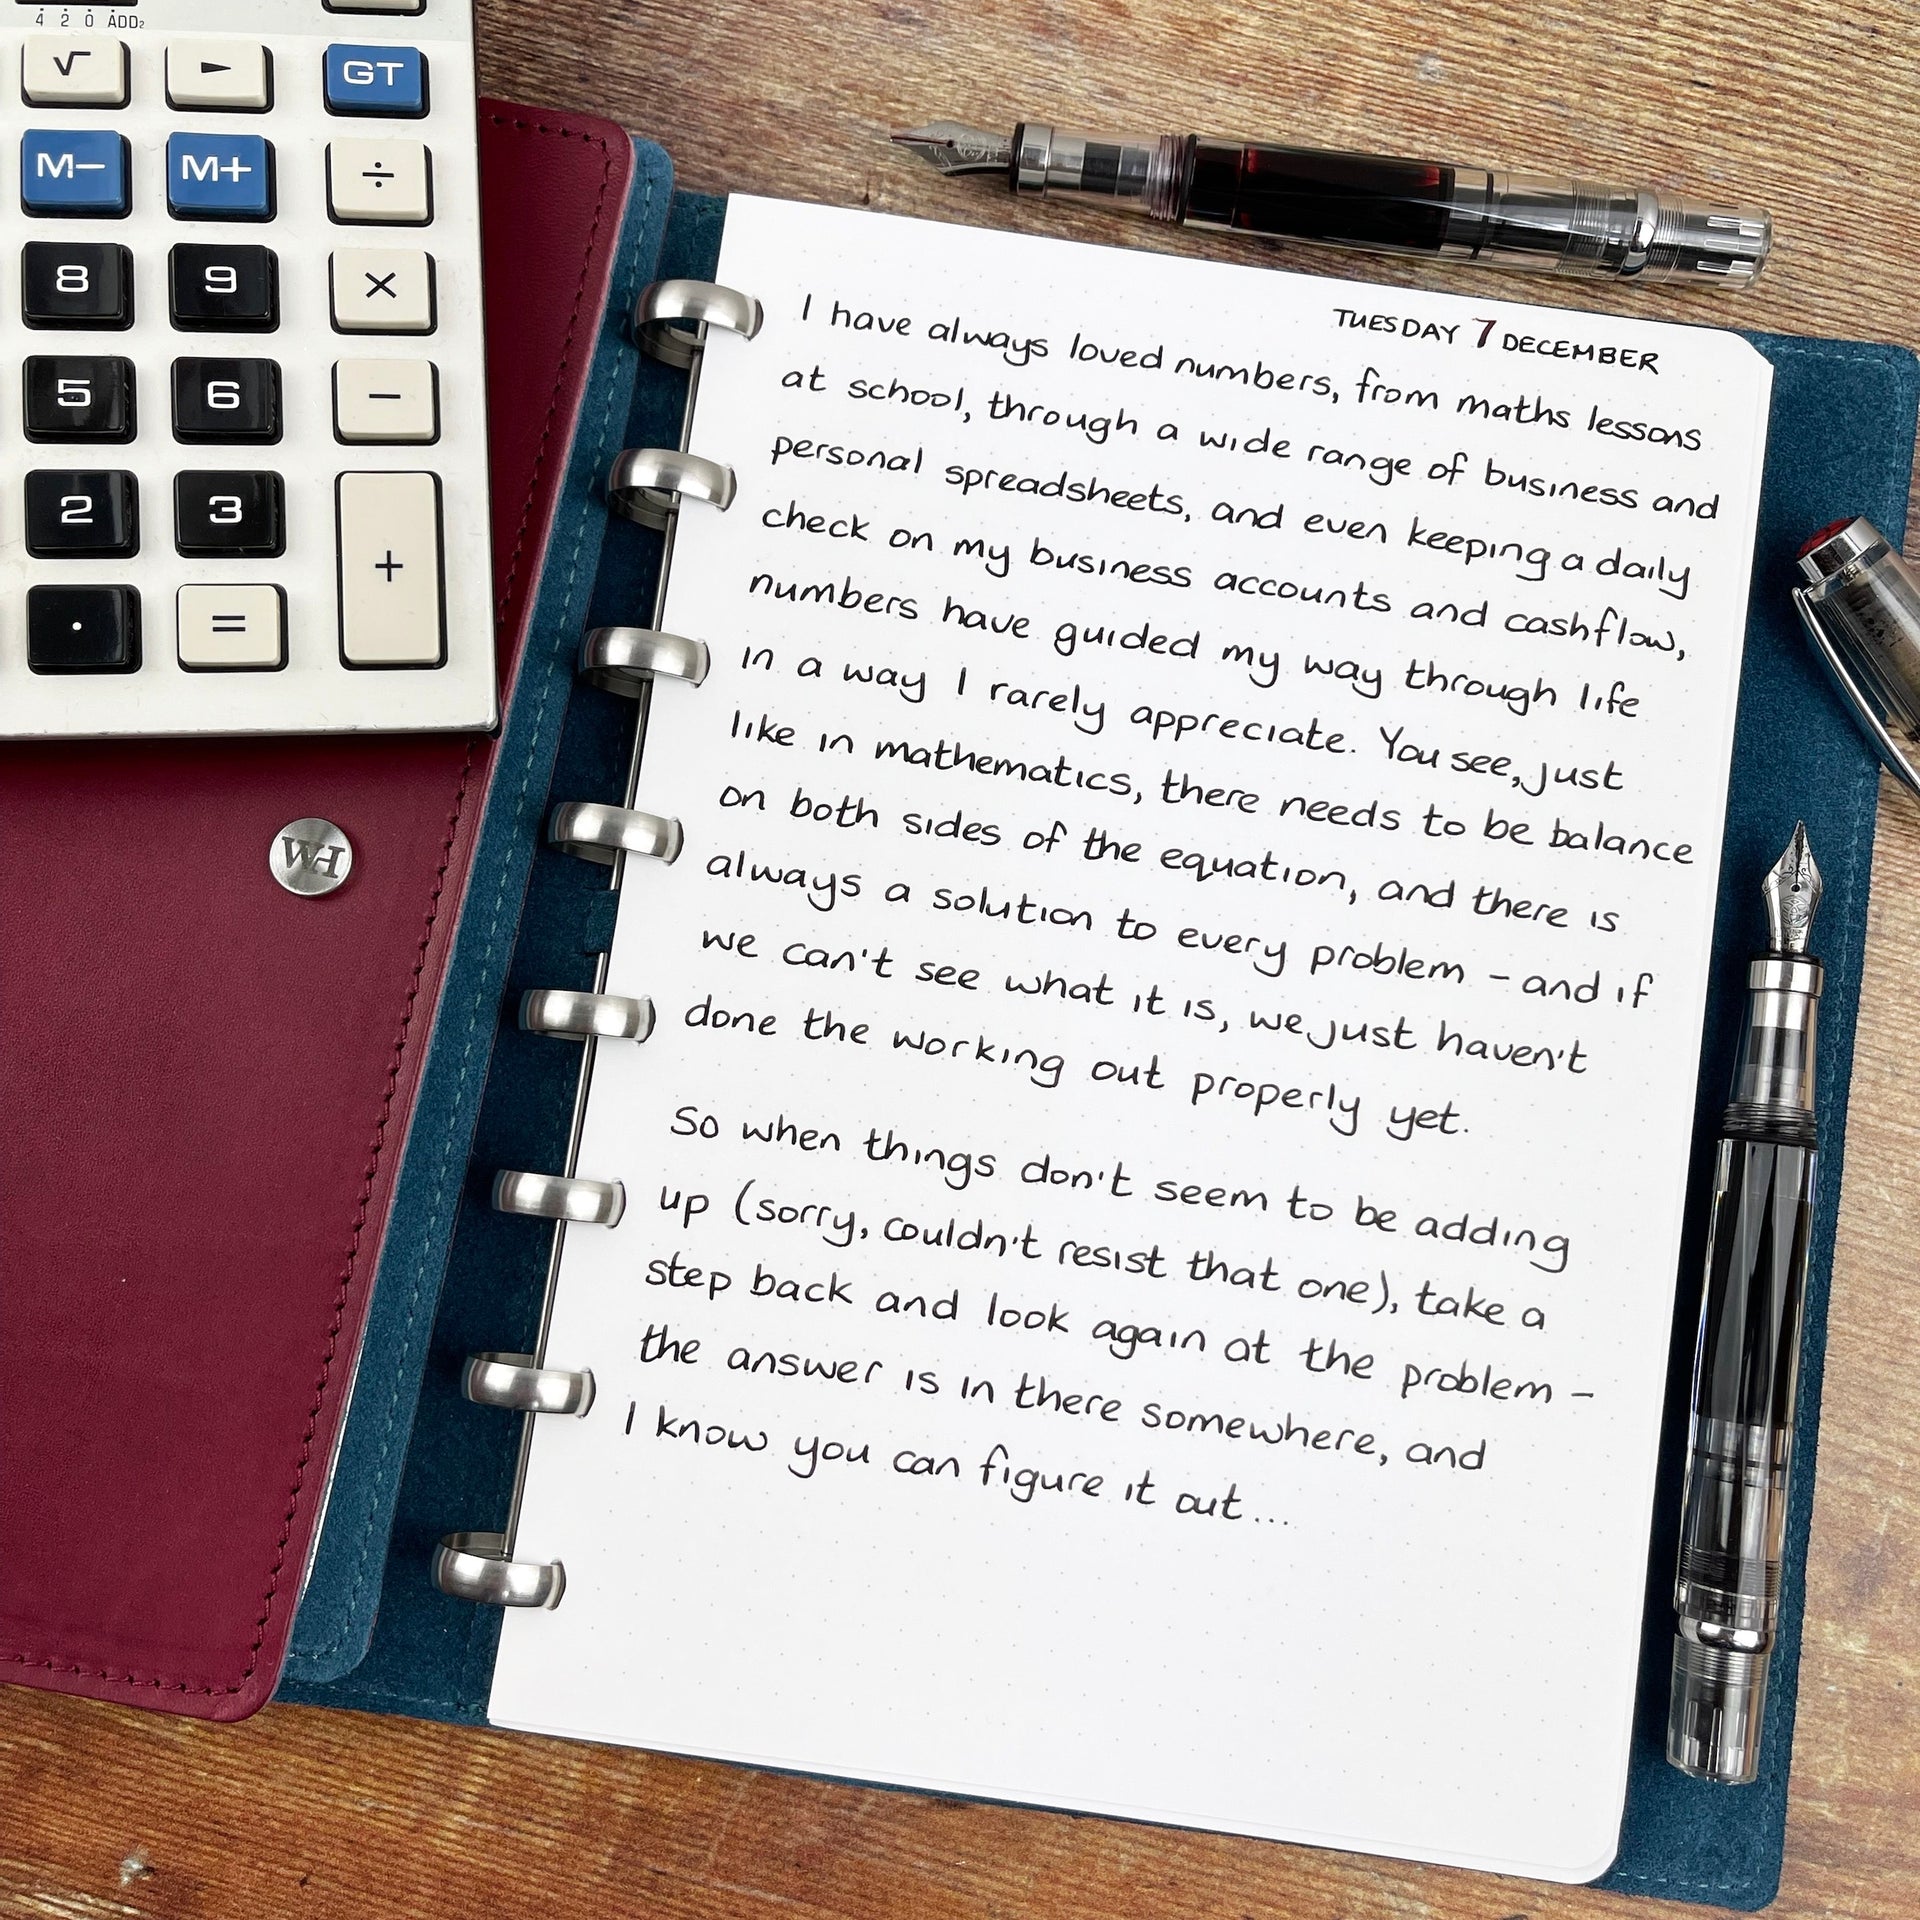 4 2 0 ADD₂
√ ► GT
M− M+ ÷
8 9 ×
5 6 −
2 3 +
. =
WH
TUESDAY 7 DECEMBER
I have always loved numbers, from maths lessons
at school, through a wide range of business and
personal spreadsheets, and even keeping a daily
check on my business accounts and cashflow,
numbers have guided my way through life
in a way I rarely appreciate. You see, just
like in mathematics, there needs to be balance
on both sides of the equation, and there is
always a solution to every problem - and if
we can't see what it is, we just haven't
done the working out properly yet.
So when things don't seem to be adding
up (sorry, couldn't resist that one), take a
step back and look again at the problem -
the answer is in there somewhere, and
I know you can figure it out...